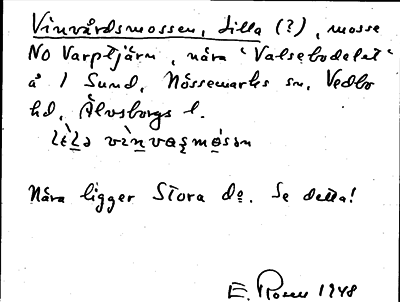 Vinvårdsmossen, Lilla (?), mosse
NO Varptjärn, nära "Valsebodelat"
å 1 Sund, Nössemarks sn, Vedbo
hd, Älvsborgs l.
Nära ligger Stora do. Se detta!
E. Rosen 1948